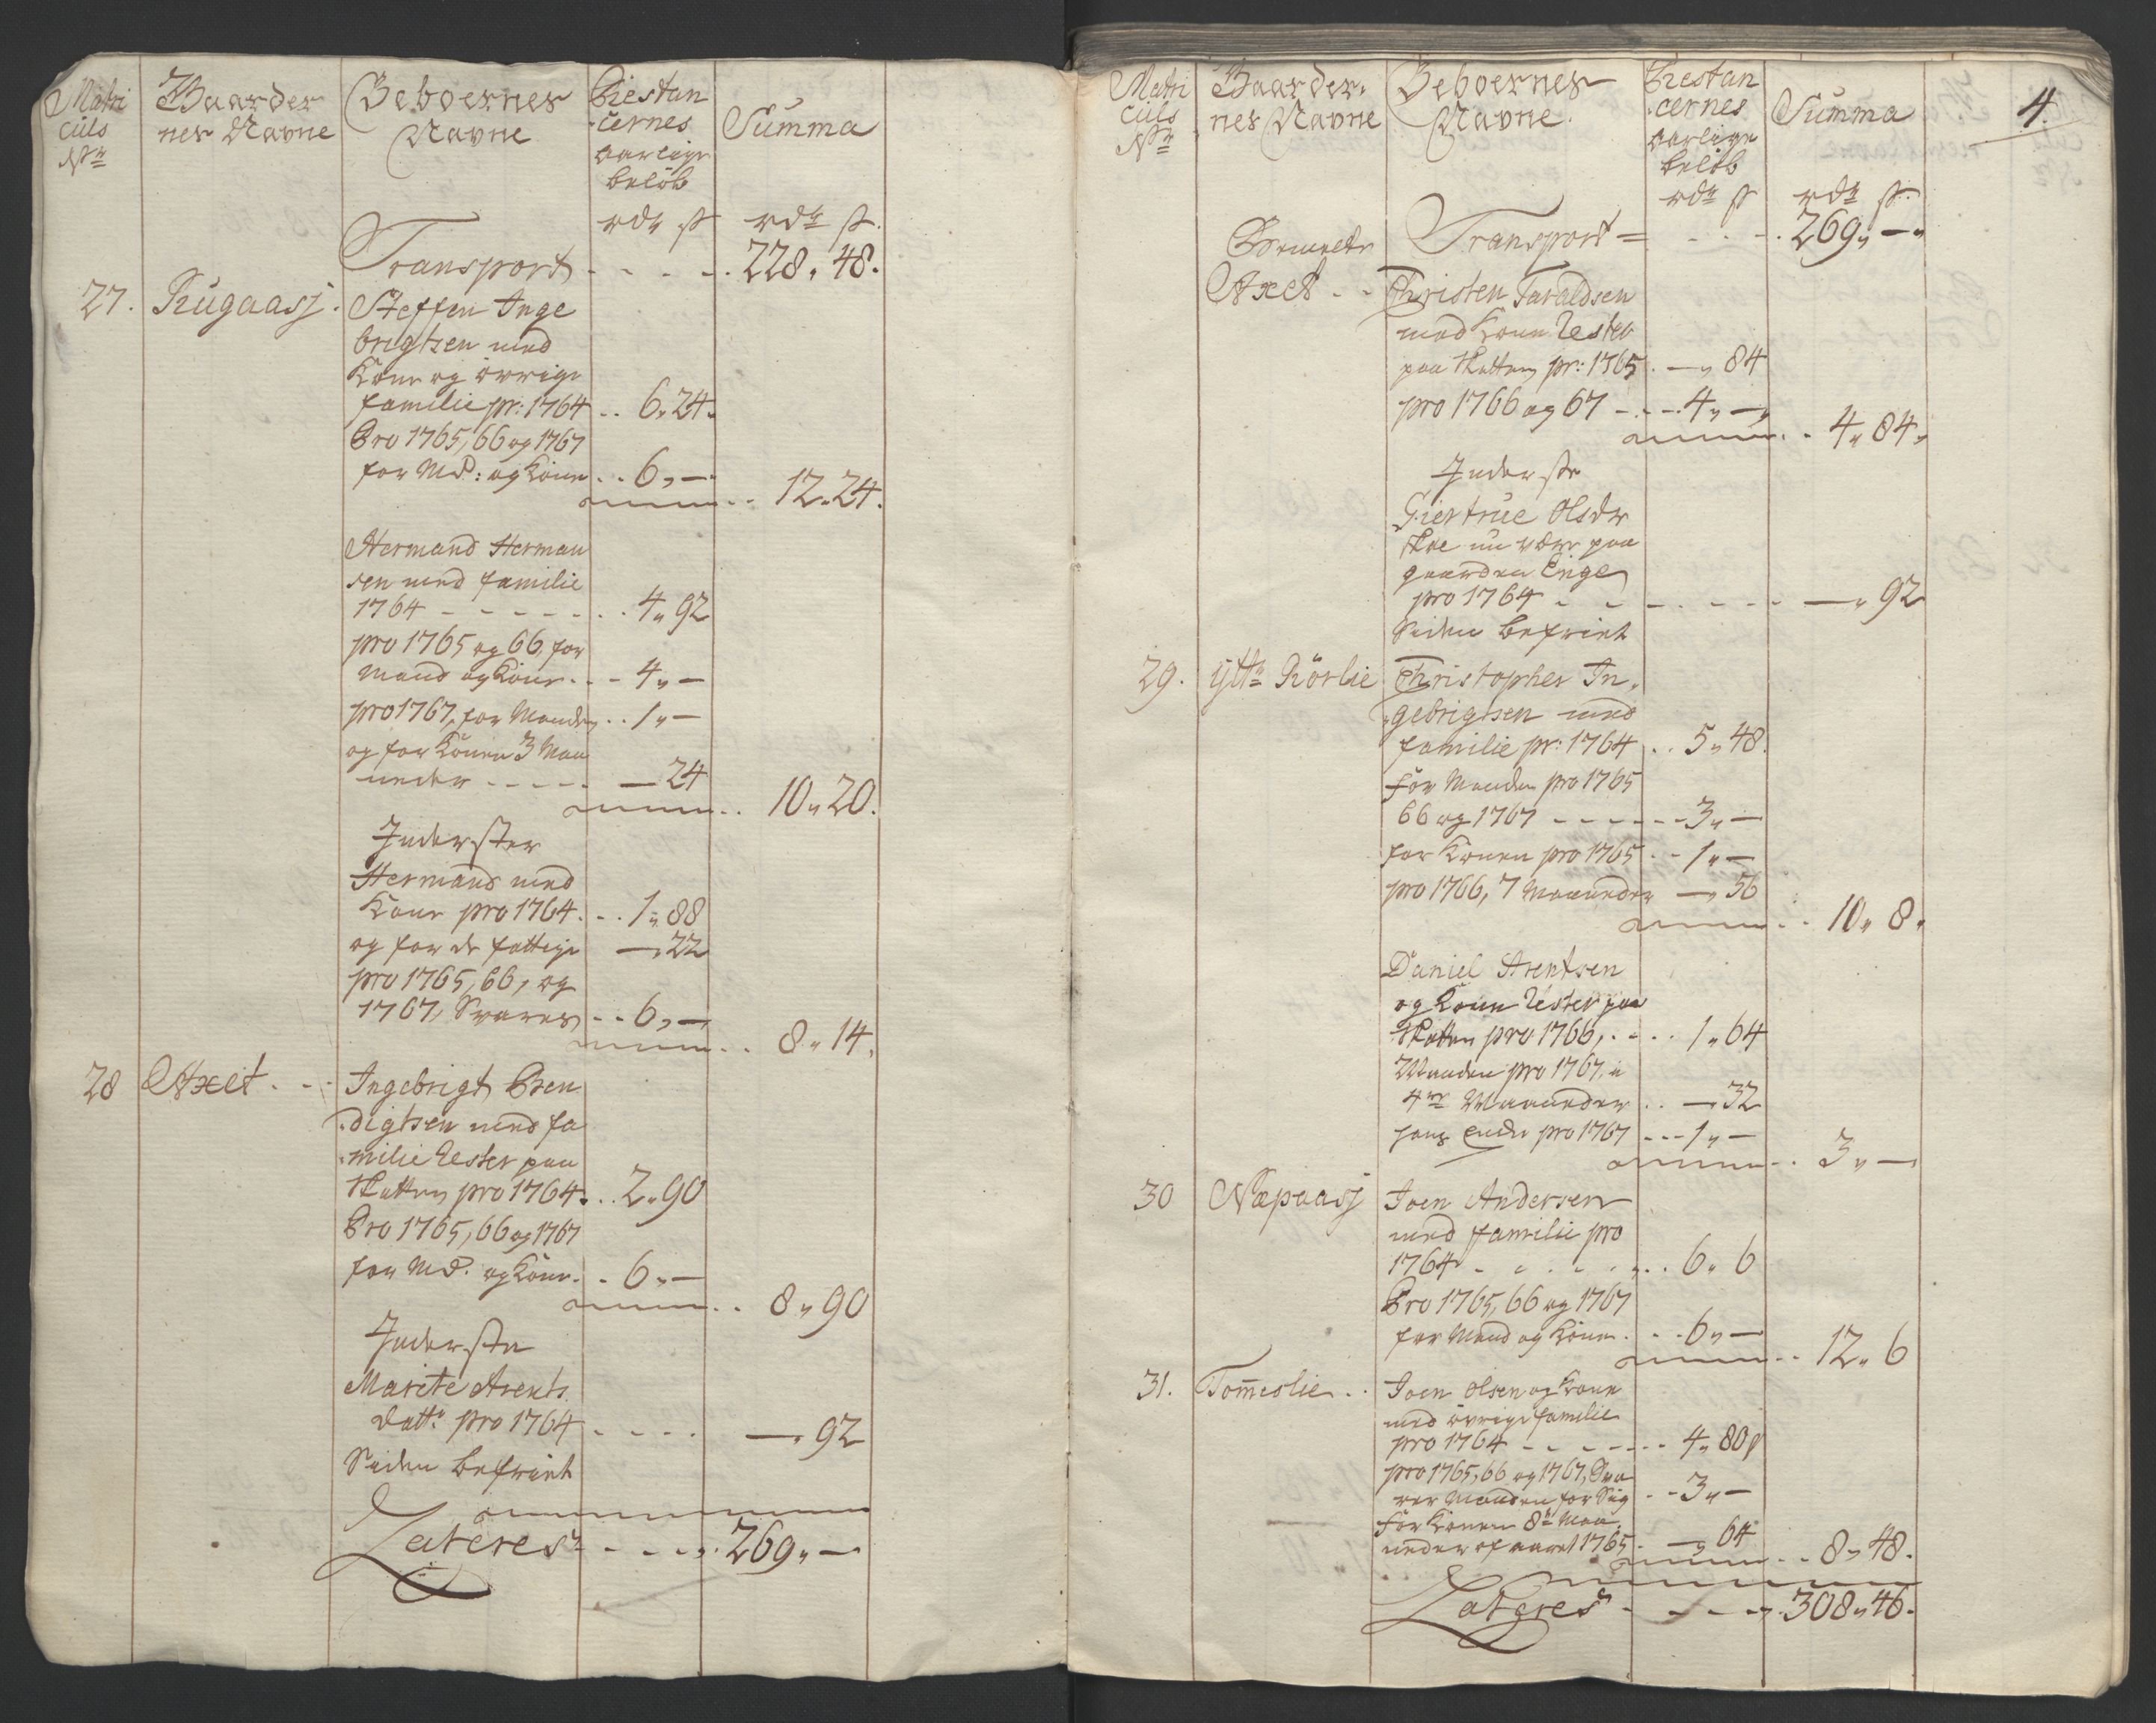 Matri
culs
Nr
Gaarder
nes Navne
Beboernes
Navne
Restan
cernes
aarlige
beløb
Summa
rdr ß rdr ß.
Transport - - - - 228 „ 48.
27. Rugaasj. Steffen Inge
brigtsen med
Kone og øvrige
familie pr: 1764 . . 6 „ 24.
Pro 1765, 66 og 1767
for Md: og Kone . . 6 „ —
12 „ 24.
Hermand Herman
sen med familie
1764 - - - - - - . 4 „ 92
pro 1765 og 66, for
Mand og Kone . - - 4 „ —
pro 1767, for Manden . . 1 „ —
og for Konen 3 Maa
neder - - - - - — 24
10 „ 20.
Inderster
Hermand med
Kone pro 1764. . . 1 „ 88
og for de fattige — „ 22
pro 1765, 66, og
1767, Svares - - 6 „ —
8 „ 14.
28 Axet. - - Ingebrigt Ben
digtsen med fa
milie Rester paa
Skatten pro 1764. . . 2 „ 90
Pro 1765, 66 og 1767
for Md. og Kone. . 6 „ —
8 „ 90
Inderste
Marite Arents
Dattr pro 1764 - - - - — „ 92
Siden befriet
Lateres - - - - 269 „ —
4.
Matri
culs
Nr
Gaarder.
nes Navne
Beboernes
Navne.
Restan
cernes
aarlige
beløb
Summa
rdr ß rdr ß.
Transport = - - - 269 „ — „
Axet - - Christen Taraldsen
med Kone Rester
paa Skatten pr: 1765 . — „ 84
pro 1766 og 67 - . - - 4 „ — „
4 „ 84 „
Inderste
Giertrue Olsdr
skal nu være paa
gaarden Enge
pro 1764 - - - - - - — „ 92
Siden befriet
29. Ytte Rörlie Christopher In„
„gebrigtsen med
familie pr: 1764 . . 5 „ 48.
For Manden pro 1765
66 og 1767 - - - - - - 3 „ —
for Konen pro 1765 - - 1 „ —
pro 1766, 7 Maaneder — „ 56
10 „ 8.
Daniel Arentsen
og Kone Rester paa
Skatten pro 1766, - - . . 1 „ 64
Manden pro 1767, i
4re Maaneder . . — „ 32
pro 1767 - - - 1 „ —
3 „ —
30 Næpaasj Joen Andersen
med familie pro
1764 - . . - - . . 6 „ 6
Pro 1765, 66 og 1767
for Mand og Kone . - - 6 „ —
12 „ 6
31. Tom̄eslie . . Joen Olsen og Kone
med øvrige familie
pro 1764 - - - - - - - 4 „ 80
pro 1765, 66 og 1767, Sva
rer Manden for Sig - - 3 „ —
For Konen 8te Maa
neder af aaret 1765 . — „ 64
8 „ 48.
Lateres - - - - 308 „ 46.